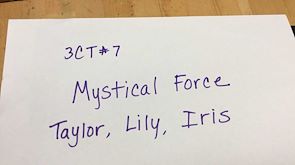 3CT#7
Mystical Force
Taylor, Lily, Iris